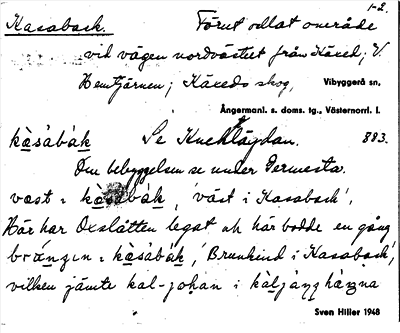 1-2.
Kasabask. Förut odlat område
vid vägen nordväst från Käxed, V.
Hemtjärnen; Käxeds skog, Vibyggerå sn.
Ångermanl. s. doms. tg., Västernorrl. l.
kàsábák Se Knektlägdan. 883.
Om bebyggelsen se under
väst i kàsábák, 'väst i Kasabask',
Här har Oxslåtten legat och här bodde en gång
brángin i kàsábák, 'Brunkind i Kasabask',
vilken jämte kal-johan i
Sven Hiller 1948